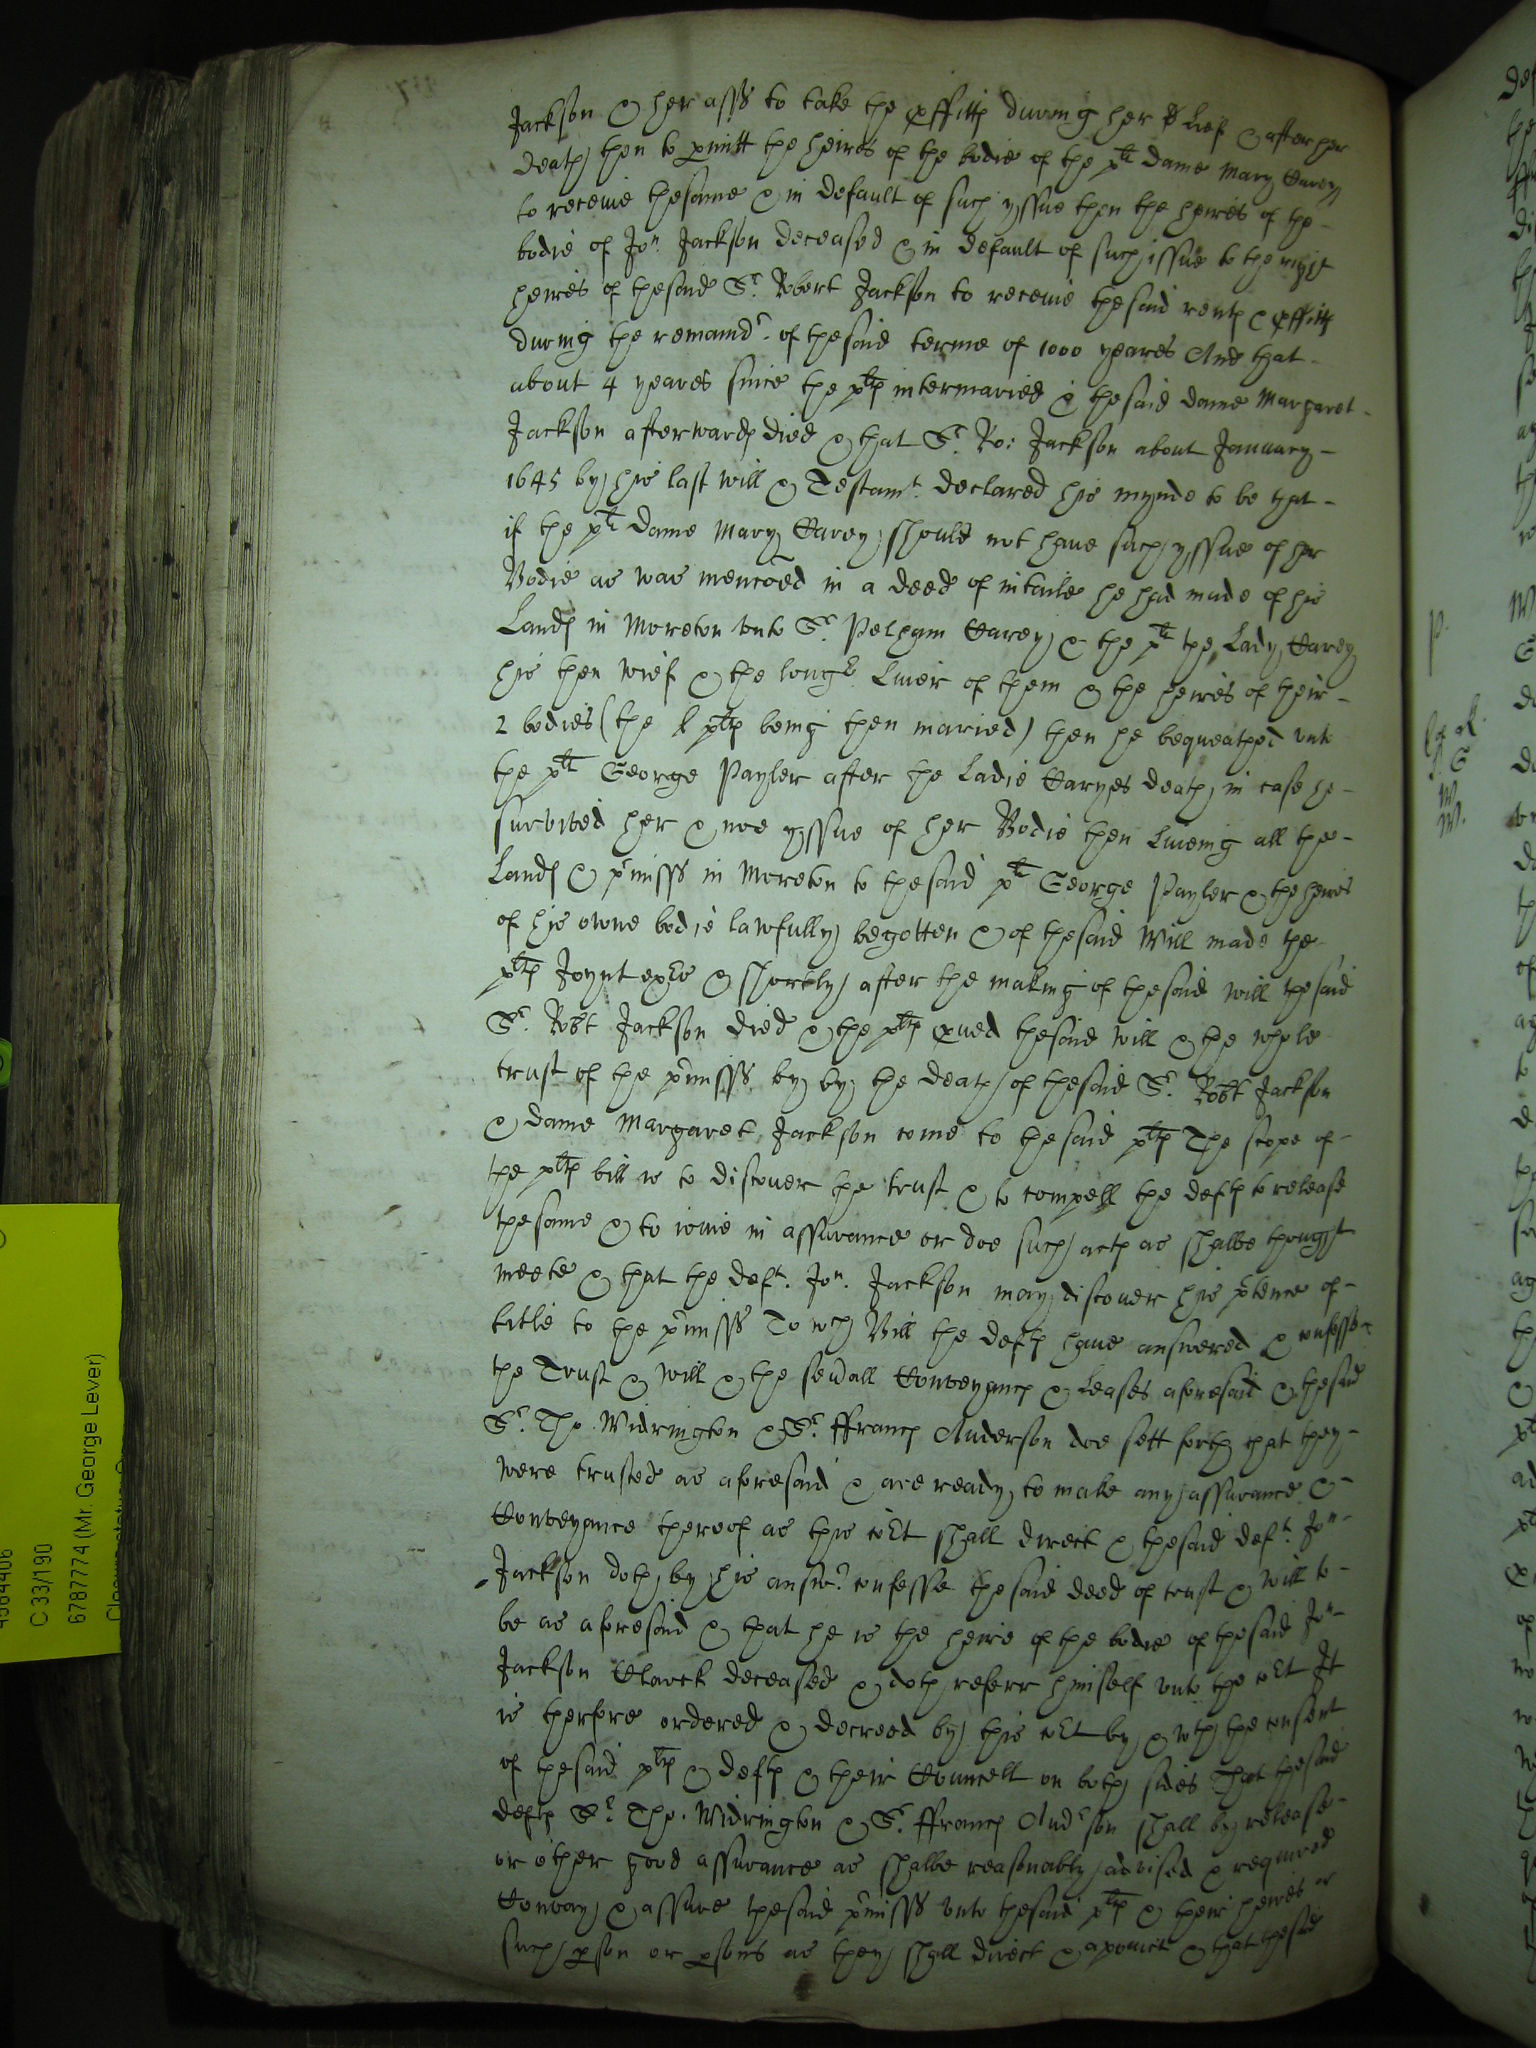 Jackson & her asss to take the pffitts during her Lief & after her
death then to pmitt the heires of the bodie of the plt dame Mary Carey
to receive thesame & in default of such yssue then the heires of the
bodie of Jon. Jackson deceased & in default of such issue to the right
heires of thesaid Sr. Robert Jackson to receive thesaid rents & pffitts
during the remaindr. of thesaid terme of 1000 yeares And that
about 4 yeares since the plts intermaried & thesaid dame Margaret
Jackson afterwards died & that Sr. Ro: Jackson about January
1645 by his last will & Testamt. declared his mynde to be that
if the plt dame Mary Carey should not have such yssue of her
Bodie as was mencoed in a deed of intaile he had made of his
Lands in Moreton unto Sr. Pelham Carey & the plt the Lady Carey
his then wief & the longr Liver of them & the heires of their
2 bodies (the plts being then maried) then he bequeathed unto
the plt George Payler after the Ladie Caryes death in case he
survived her & noe yssue of her Bodie then Liveing all the
Lands & pmisss in Moreton to thesaid plt George Payler & the heires
of his owne bodie lawfully begotten & of thesaid Will made the
plts Joynt exrs & shortly after the making of thesaid will thesaid
Sr. Robt Jackson died & the plts pved thesaid will & the whole
trust of the pmisss by by the death of thesaid Sr. Robt Jackson
& dame Margaret Jackson come to thesaid plts The scope of
the plts bill is to discover the trust & to compell the defts to release
thesame & to ioine in assurance or doe such acts as shalbe thought
meete & that the deft. Jon. Jackson may discover his ptence of
title to the pmisss To wch Bill the defts have answered & confesse
the Trust & will & the sevall Conveyancs & Leases aforesaid & thesaid
Sr. Tho. Widrington & Sr. ffrancs Anderson doe sett forth that they
were trusted as aforesaid & are ready to make any assurance &
Conveyance thereof as this cort shall direct & thesaid deft. Jon
Jackson doth by his answr. confesse thesaid deed of trust & will to
be as aforesaid & that he is the heire of the bodie of thesaid Jon
Jackson Clarck deceased & doth referr himself unto the cort It
is therfore ordered & decreed by this cort by & wth the consent
of thesaid plts & defts & their Councell on both sides That thesaid
defts Sr. Tho. Widrington & Sr. ffrancs Andrson shall by release
or other good assurance as shalbe reasonably advised & required
Convay & assure thesaid pmisss unto thesaid plts & their heires or
such pson or psons as they shall direct & apoinct & that thesaid
C 33/190
6787774 (Mr. George Lever)